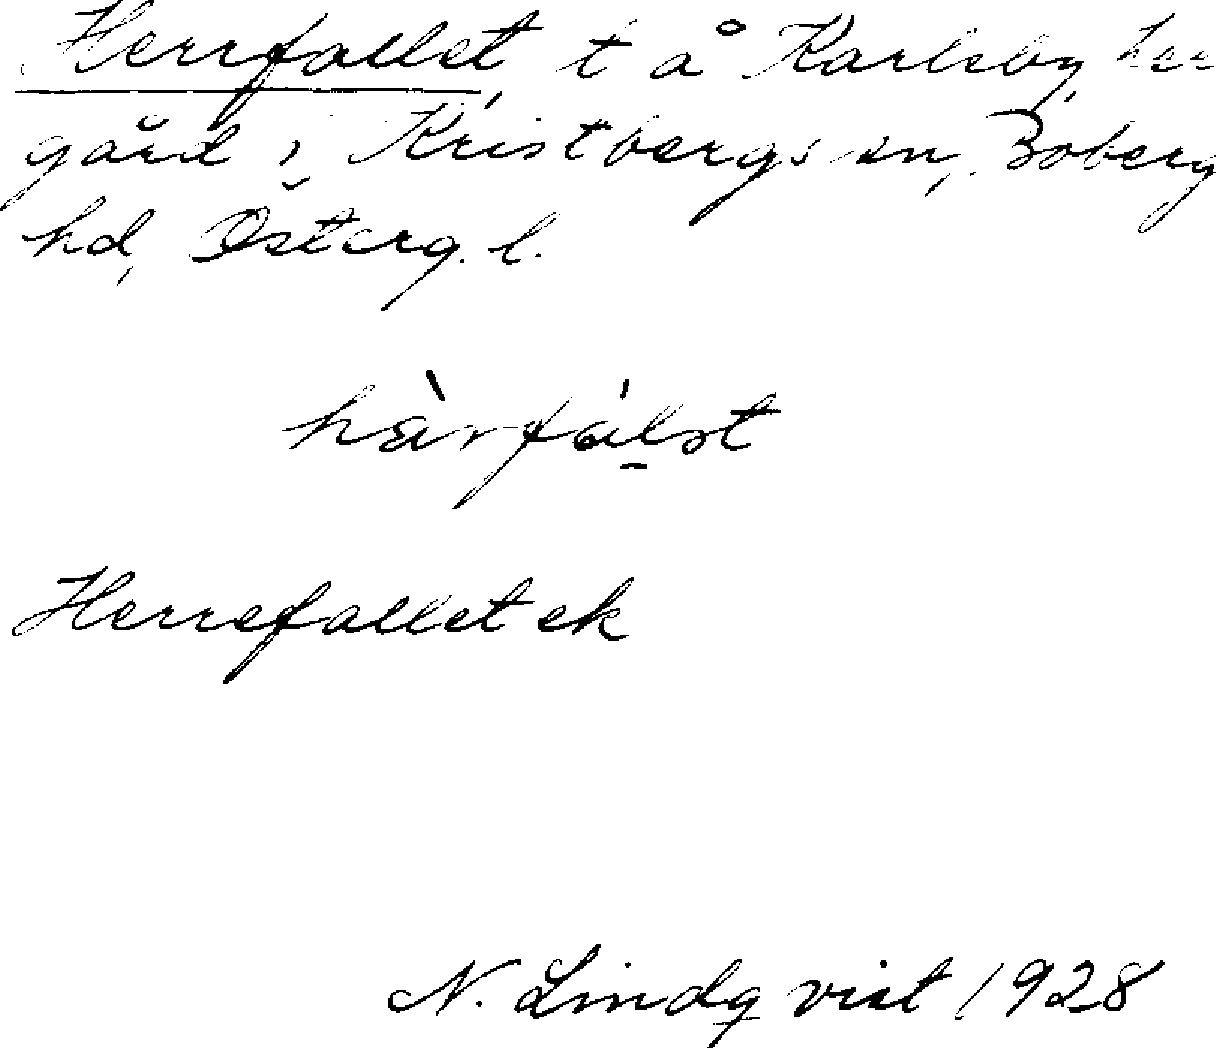 Herrfallet, t å Karlsby her
gård i Kristbergs sn, Boberg
hd, Österg. l.
hàrfál̠st
Herrefallet ek
N. Lindqvist 1928